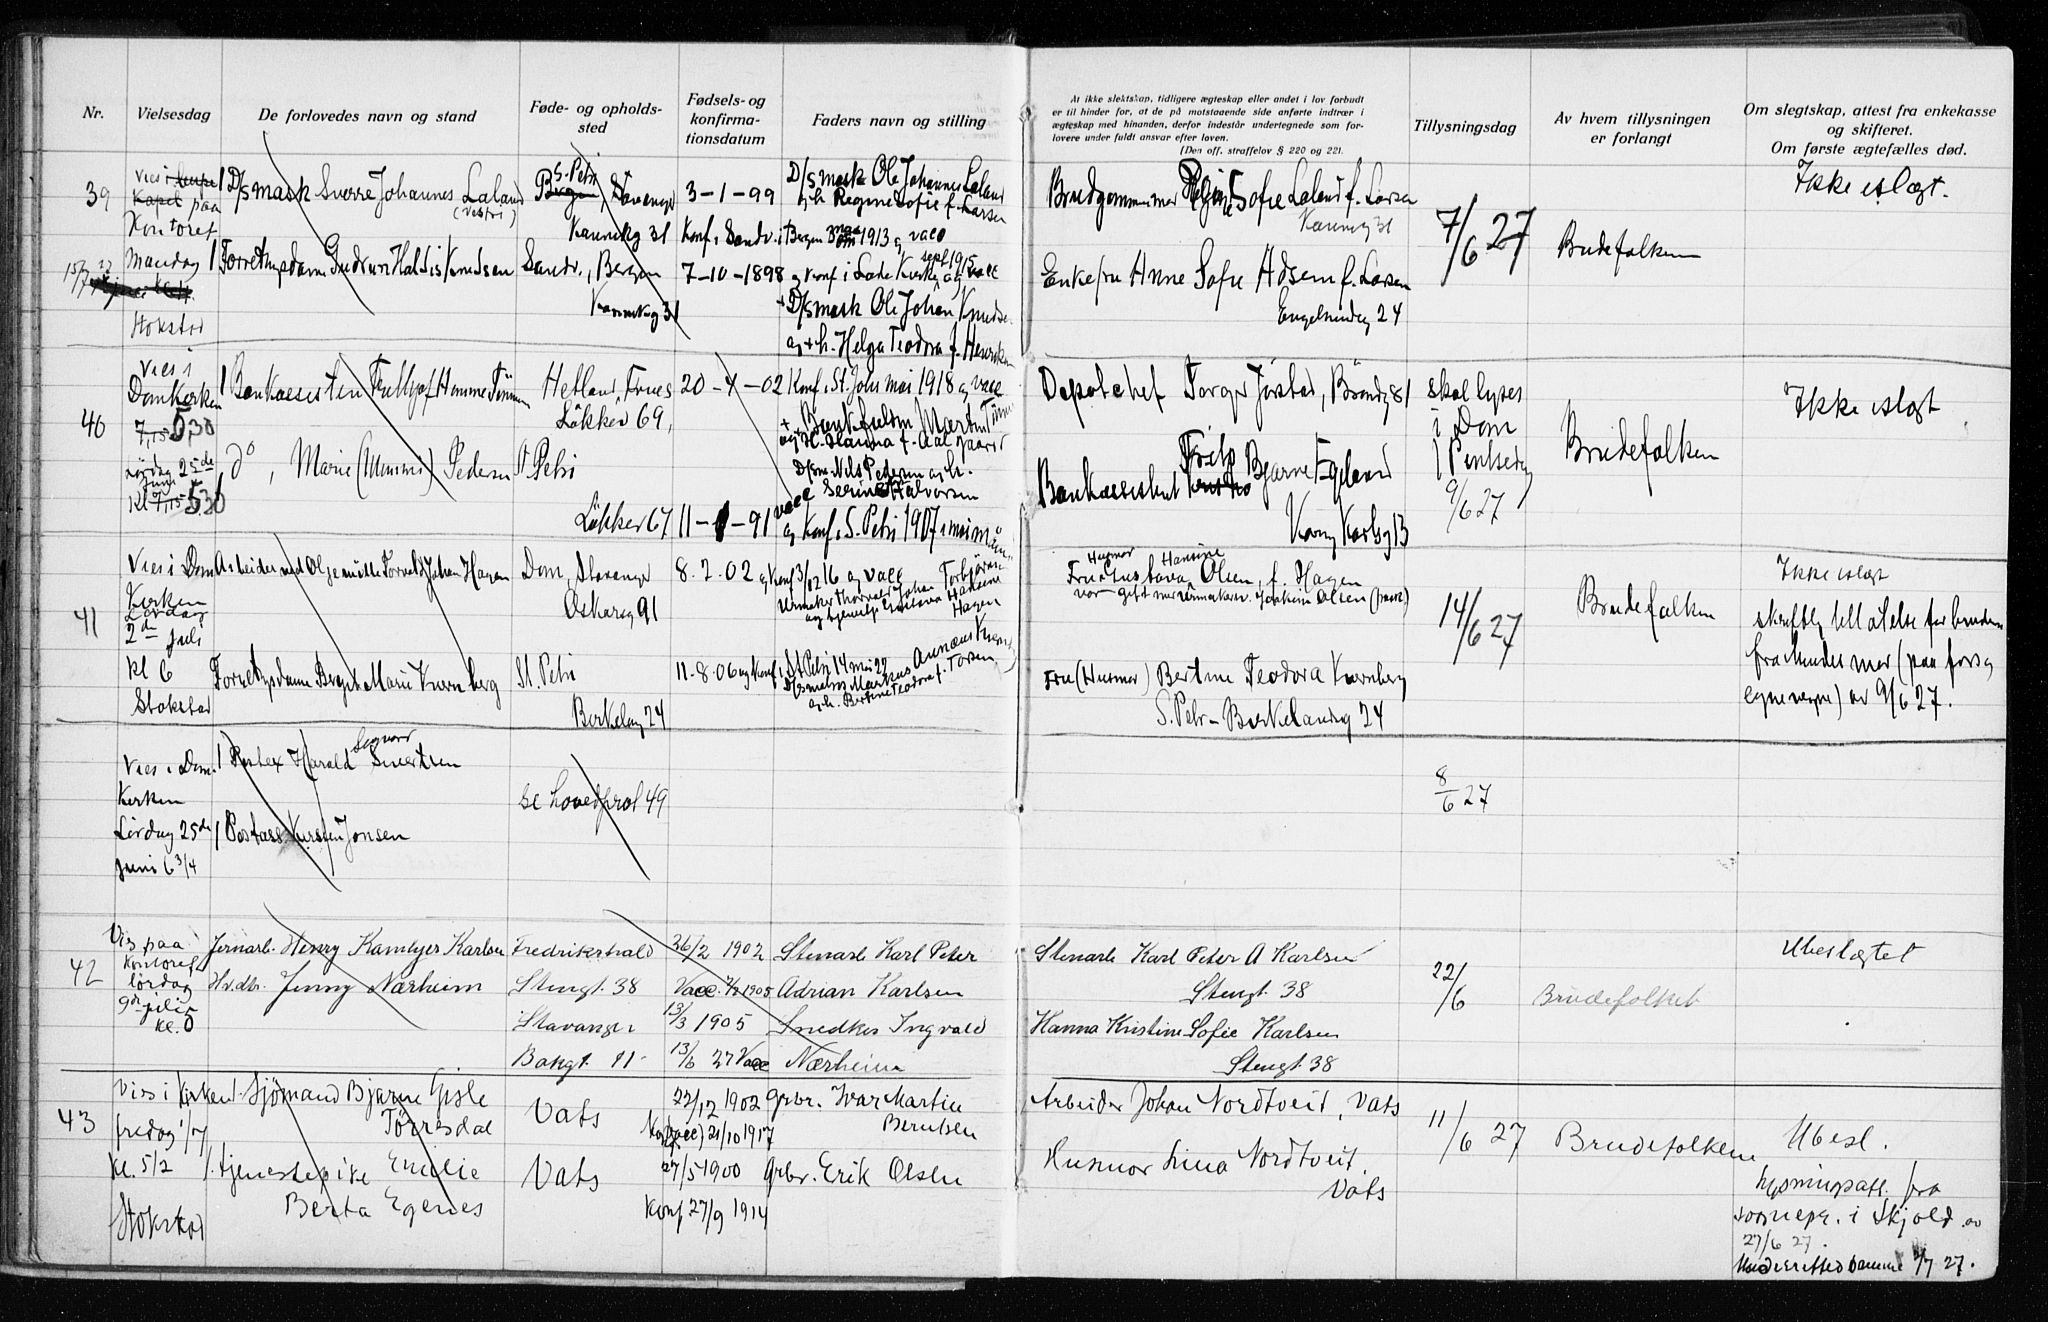 Nr.
Vielsesdag
De forlovedes navn og stand
Føde- og opholds-
sted
Fødsels- og
konfirma-
tionsdatum
Faders navn og stilling
At ikke slektskap, tidligere ægteskap eller andet i lov forbudt
er til hinder for, at de på motstaaende side anførte indtrær i
ægteskap med hinanden, derfor indestår undertegnede som for-
lovere under fuldt ansvar efter loven.
(Den off. straffelov § 220 og 221.
Tillysningsdag
Av hvem tillysningen
er forlangt
Om slegtskap, attest fra enkekasse
og skifteret.
Om første ægtefælles død.
39
Vies i
Kapel paa
Kontoret
Mandag
Stokstad
D/s mask Sverre Johannes Laland
(Vestri)
Forretningsdame Gudrun Haldis Knudsen
S. Petri
Bergen, Stavanger
Kannikg 31
Sandv., Bergen
Kannikg 31
3-1-99
Konf. Sandv. i Bergen 1913 og vacc
7-10-1898
og konf i Lade Kirke sept 1915 og vacc
D/s mask Ole Johannes Laland
og h. Regine Sofie f. Larsen
+ D/s mask Ole Johan Knudsen
og + h. Helga Teodora f. Henriksen
Brudgommens mor Regine Sofie Laland f. Larsen
Kannikg 31
Enkefru Anne Sofie Adsem f. Larsen
Engelmindeg 24
7/6 27
Brudefolkene
Ikke i slegt.
40
Vies i
Domkirken
7,15 5,30
Lørdag 25de
Juni
Kl 7,15 5.30
Bankassistent Fridthjof Hemme Tönnesen
do, Marie (Mimmi) Pedersen
Hetland, Fornes
Løkkev 69,
St Petri
Løkkev 67
20-4-02
Konf. St. Johs mai 1918 og vacc
11-1-91
og konf. S. Petri 1907
og h. Hanna f. Aalgaard
D/sm Nils Pedersen og h.
Serine Halvorsen
vacc
Depotchef Torger Jørstad, Börsevg 81
Bankassistent Frits Bjarne Egeland
Kong Karlsg 13
skal lyses
i Dom
1 Pinksedag
9/6 27
Brudefolkene
Ikke i slegt
41
Vies i Dom
Kirken
Lørdag
2den juli
Kl 6
Stokstad
Arbeider ved Oljemölle Torvald Johan Hagen
Forretningsdame Bergit Marie Kvernberg
Dom, Stavanger
Oskarsg 91
St. Petri
Berkelandsg 24
8.2.02
11.8.06 og konf. i St Petri 14 mai 22
og h. Bertine Teodora f. Torsen
Husmor Hansine
Fru Gustava Olsen, f. Hagen
Fru (Husmor) Bertine Teodora Kvernberg
S. Petri - Berkelandsg 24
14/6 27
Brudefolkene
Ikke i slegt
skriftlig tillatelse for bruden
fra hendes mor (paa farsog
egne vegne) av 9/6 27.
Vies i Dom.
Kirken
Lørdag 25de
Juni 6 3/4
Postex Harald Segner Sivertsen
Postass. Kirsten Jonsen
se hovedprot 49
8/6 27
42
Vis paa
Kontoret
lørdag
9de juli
kl. 5
Jernarb. Henry Kamtyer Karlsen
Hvdtr. Jenny Nærheim
Fredrikstrald
Stengt. 38
Stavanger
Bakgt. 11
26/2 1902
Vacc. 7/2 1905
13/3 1905
13/6 27 Vacc
Stenarb. Karl Peter
Adrian Karlsen
Snedker Ingvald
Nærheim
Stenarb Karl Peter A Karlsen
Stengt. 38
Hanna Kristine Sofie Karlsen
Stengt. 38
22/6
Brudefolket
Ubeslægtet
43
Vies i Kirken
fredag 1/7
kl. 5 1/2
Stokstad
Sjømand Bjarne Gisle
Tørresdal
tjenestepike Emelie
Berta Egenes
Vats
Vats
22/12 1902
Konf (vacc) 21/10 1917
27/5 1900
Konf 27/9 1914
Grbr. Ivar Martin
Berntsen
Grbr. Erik Olsen
Arbeider Johan Nordtveit, Vats
Husmor Lina Nordtveit.
Vats
11/6 27
Brudefolkene
Ubesl.
lysningsatt. fra
sognepr. i Skjold av
27/6 27.